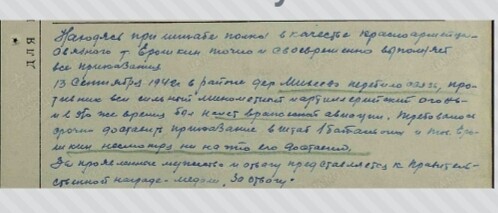 для
Находясь при штабе полка в качестве красноармейца-
связного т. Ерошкин точно и своевременно выполняет
все приказания
13 Сентября 1942г в районе дер. перебило связь, про-
тивник вел сильный минометный и артиллерийский огонь
и в это же время был налет вражеской авиации. Требовалось
срочно доставить приказание в штаб 1 батальона и тов. Еро-
шкин несмотря ни на что его доставил.
За проявленное мужество и отвагу представляется к правитель-
ственной награде - медали "За отвагу".